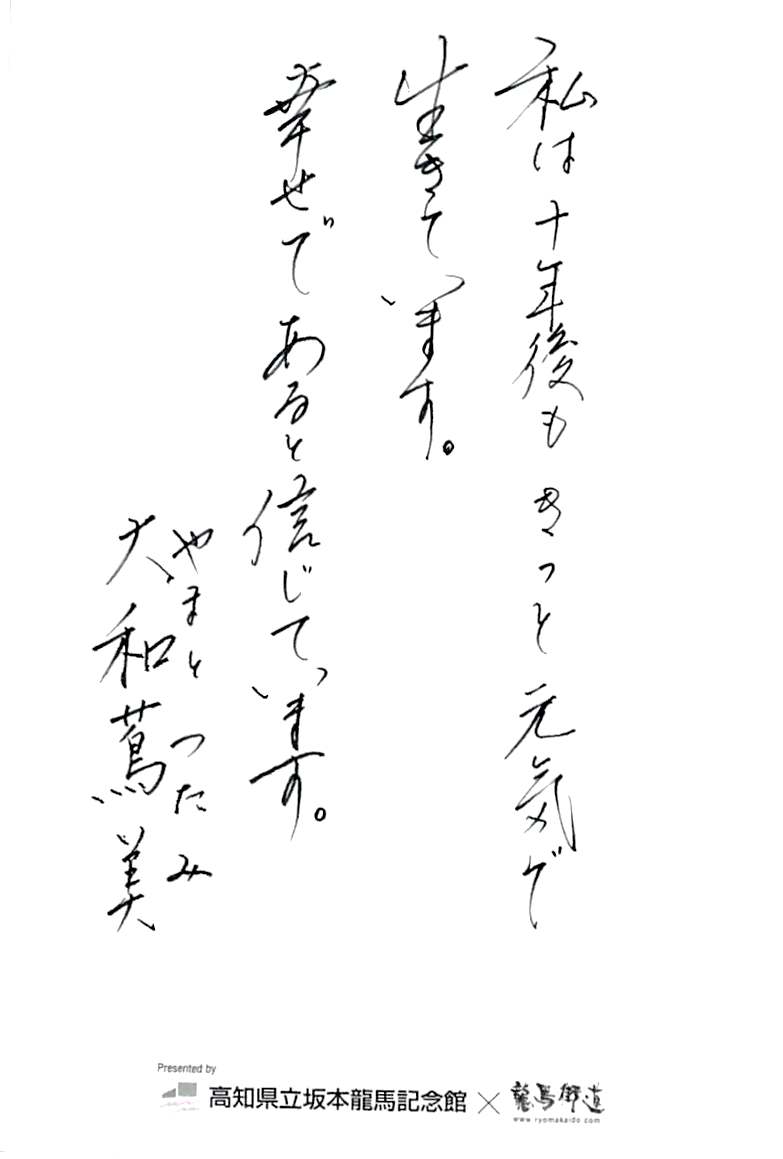 私は十年後もきっと元気で
生きています。
幸せであると信じています。
やまと つたみ
大和蔦美
Presented by
高知県立坂本龍馬記念館 × 龍馬街道
www.ryomakaido.com